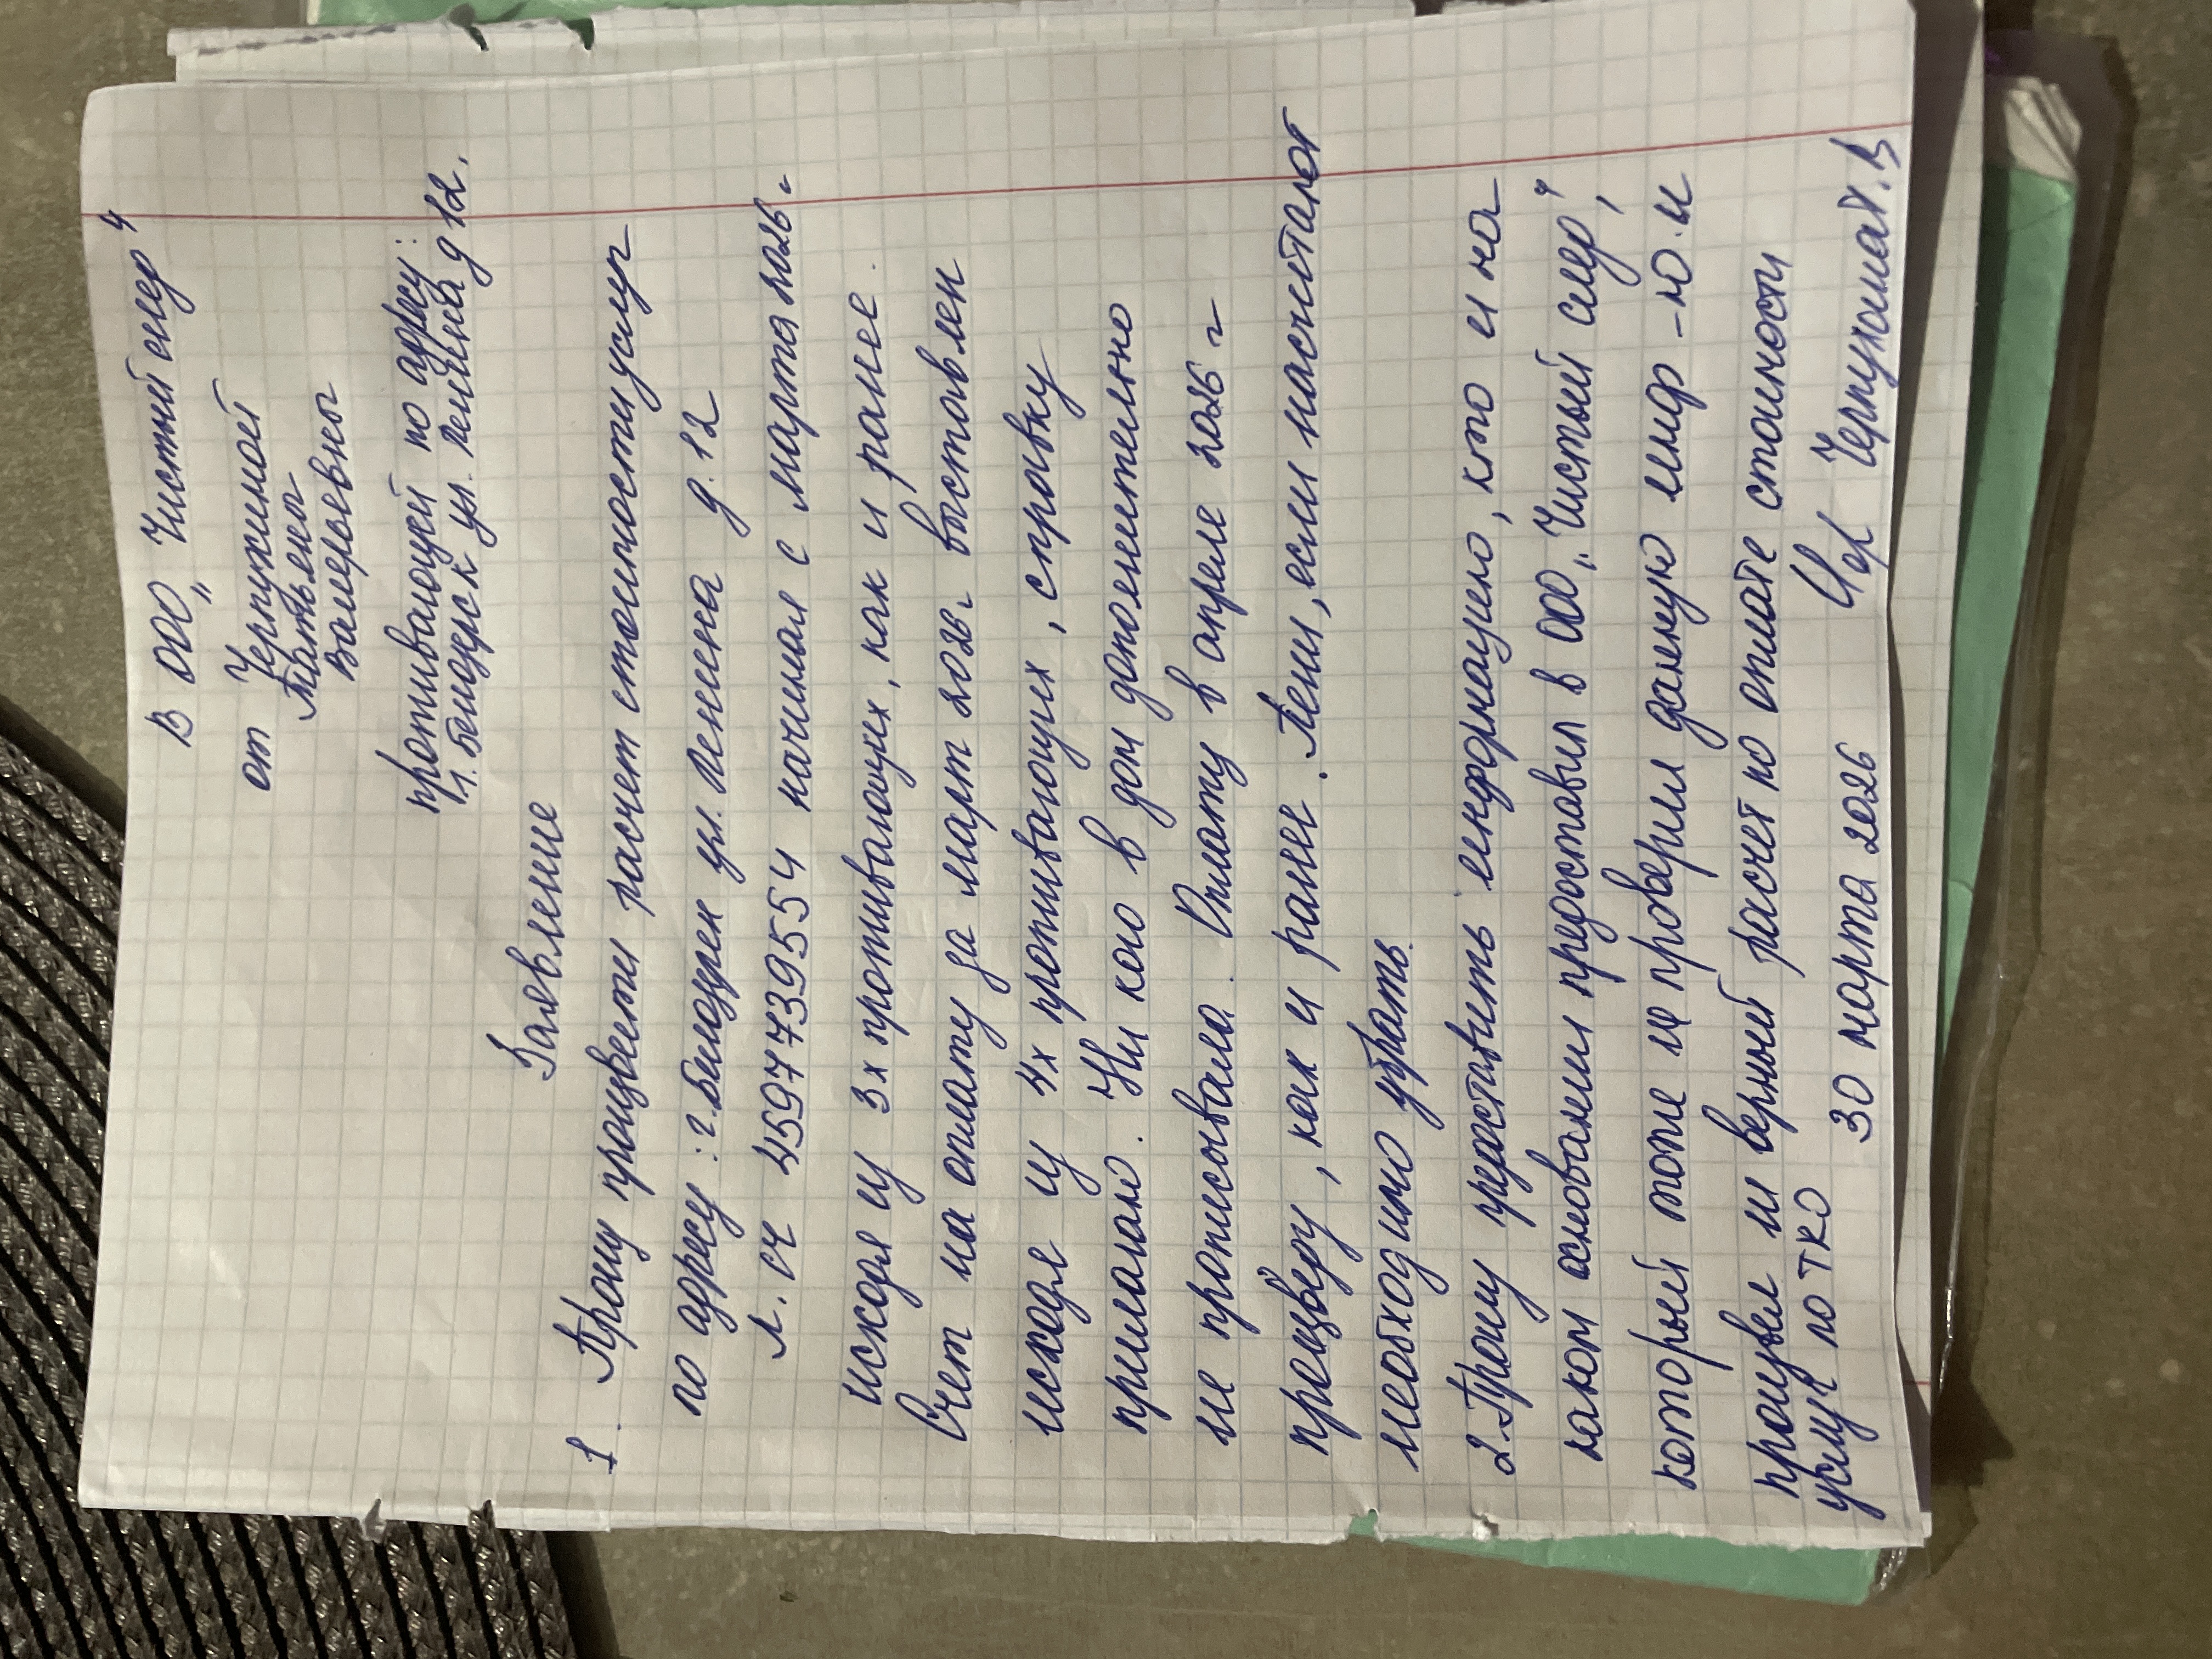 В ООО „Чистый мир“
от Чернужиной
Татьяны
Валерьевны
проживающей по адресу:
г. Белозерск ул. Ленина д 12.
Заявление
1. Прошу произвести расчет стоимости услуг
по адресу: г. Белозерск ул. Ленина д. 12
л. сч 45977739554 начиная с марта 2026 г
исходя из 3х проживающих, как и ранее.
Счет на оплату за март 2026 г выставлен
исходя из 4х проживающих, справку
прилагаю. Ни кого в дом дополнительно
не прописывала. Оплату в апреле 2026 г
произведу, как и ранее. Пени, если насчитают
необходимо убрать.
2. Прошу предоставить информацию, кто и на
каком основании предоставил в ООО „Чистый мир“,
который тоже не проверил данную инф-ю. и
произвел не верный расчет по оплате стоимости
услуг по ТКО
30 марта 2026 Чернужина Т. В